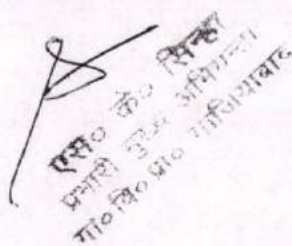 एस० के० सिन्हा
प्रभारी मुख्य अभियन्ता
गा० वि० प्रा० गाजियाबाद